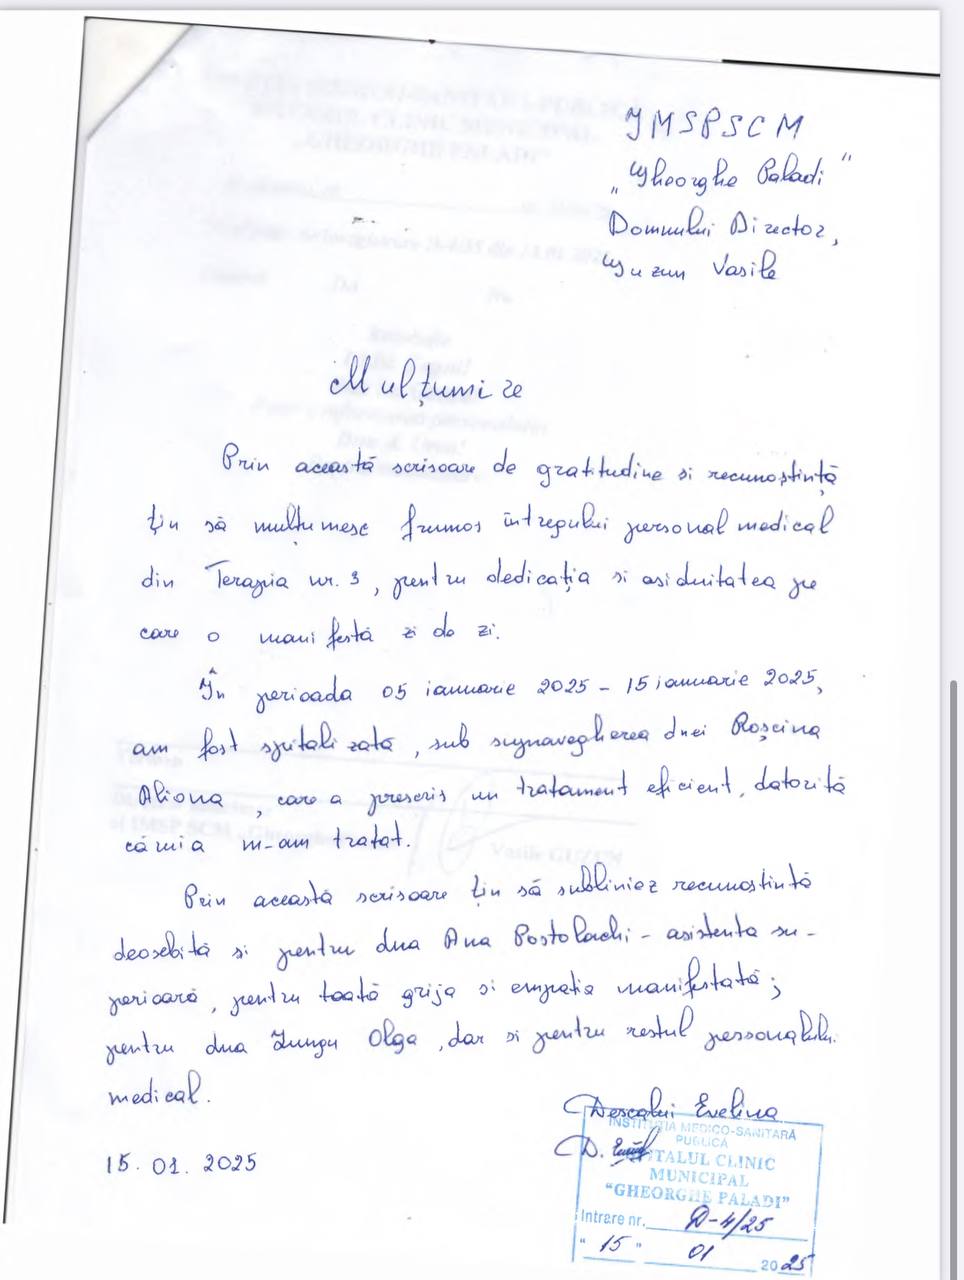 IMSPSCM
„Gheorghe Paladi"
Domnului Director,
Guzun Vasile
Mulțumire
Prin această scrisoare de gratitudine si recunoștință
țin să mulțumesc frumos întregului personal medical
din Terapia nr. 3, pentru dedicația si asiduitatea pe
care o manifestă zi de zi.
În perioada 05 ianuarie 2025 - 15 ianuarie 2025,
am fost spitalizată, sub supravegherea dnei Roșcina
Aliona, care a prescris un tratament eficient, datorită
căruia m-am tratat.
Prin această scrisoare țin să subliniez recunostintă
deosebită si pentru dna Ana Postolachi - asistenta su-
perioară, pentru toată grija si empatia manifestată;
pentru dna Lungu Olga, dar si pentru restul personalului
medical.
Descalui Evelina
D.
15.01.2025
INSTITUȚIA MEDICO-SANITARĂ
PUBLICĂ
SPITALUL CLINIC
MUNICIPAL
"GHEORGHE PALADI"
Intrare nr. D-4/25
"15" 01 2025
Vasile GUZUN